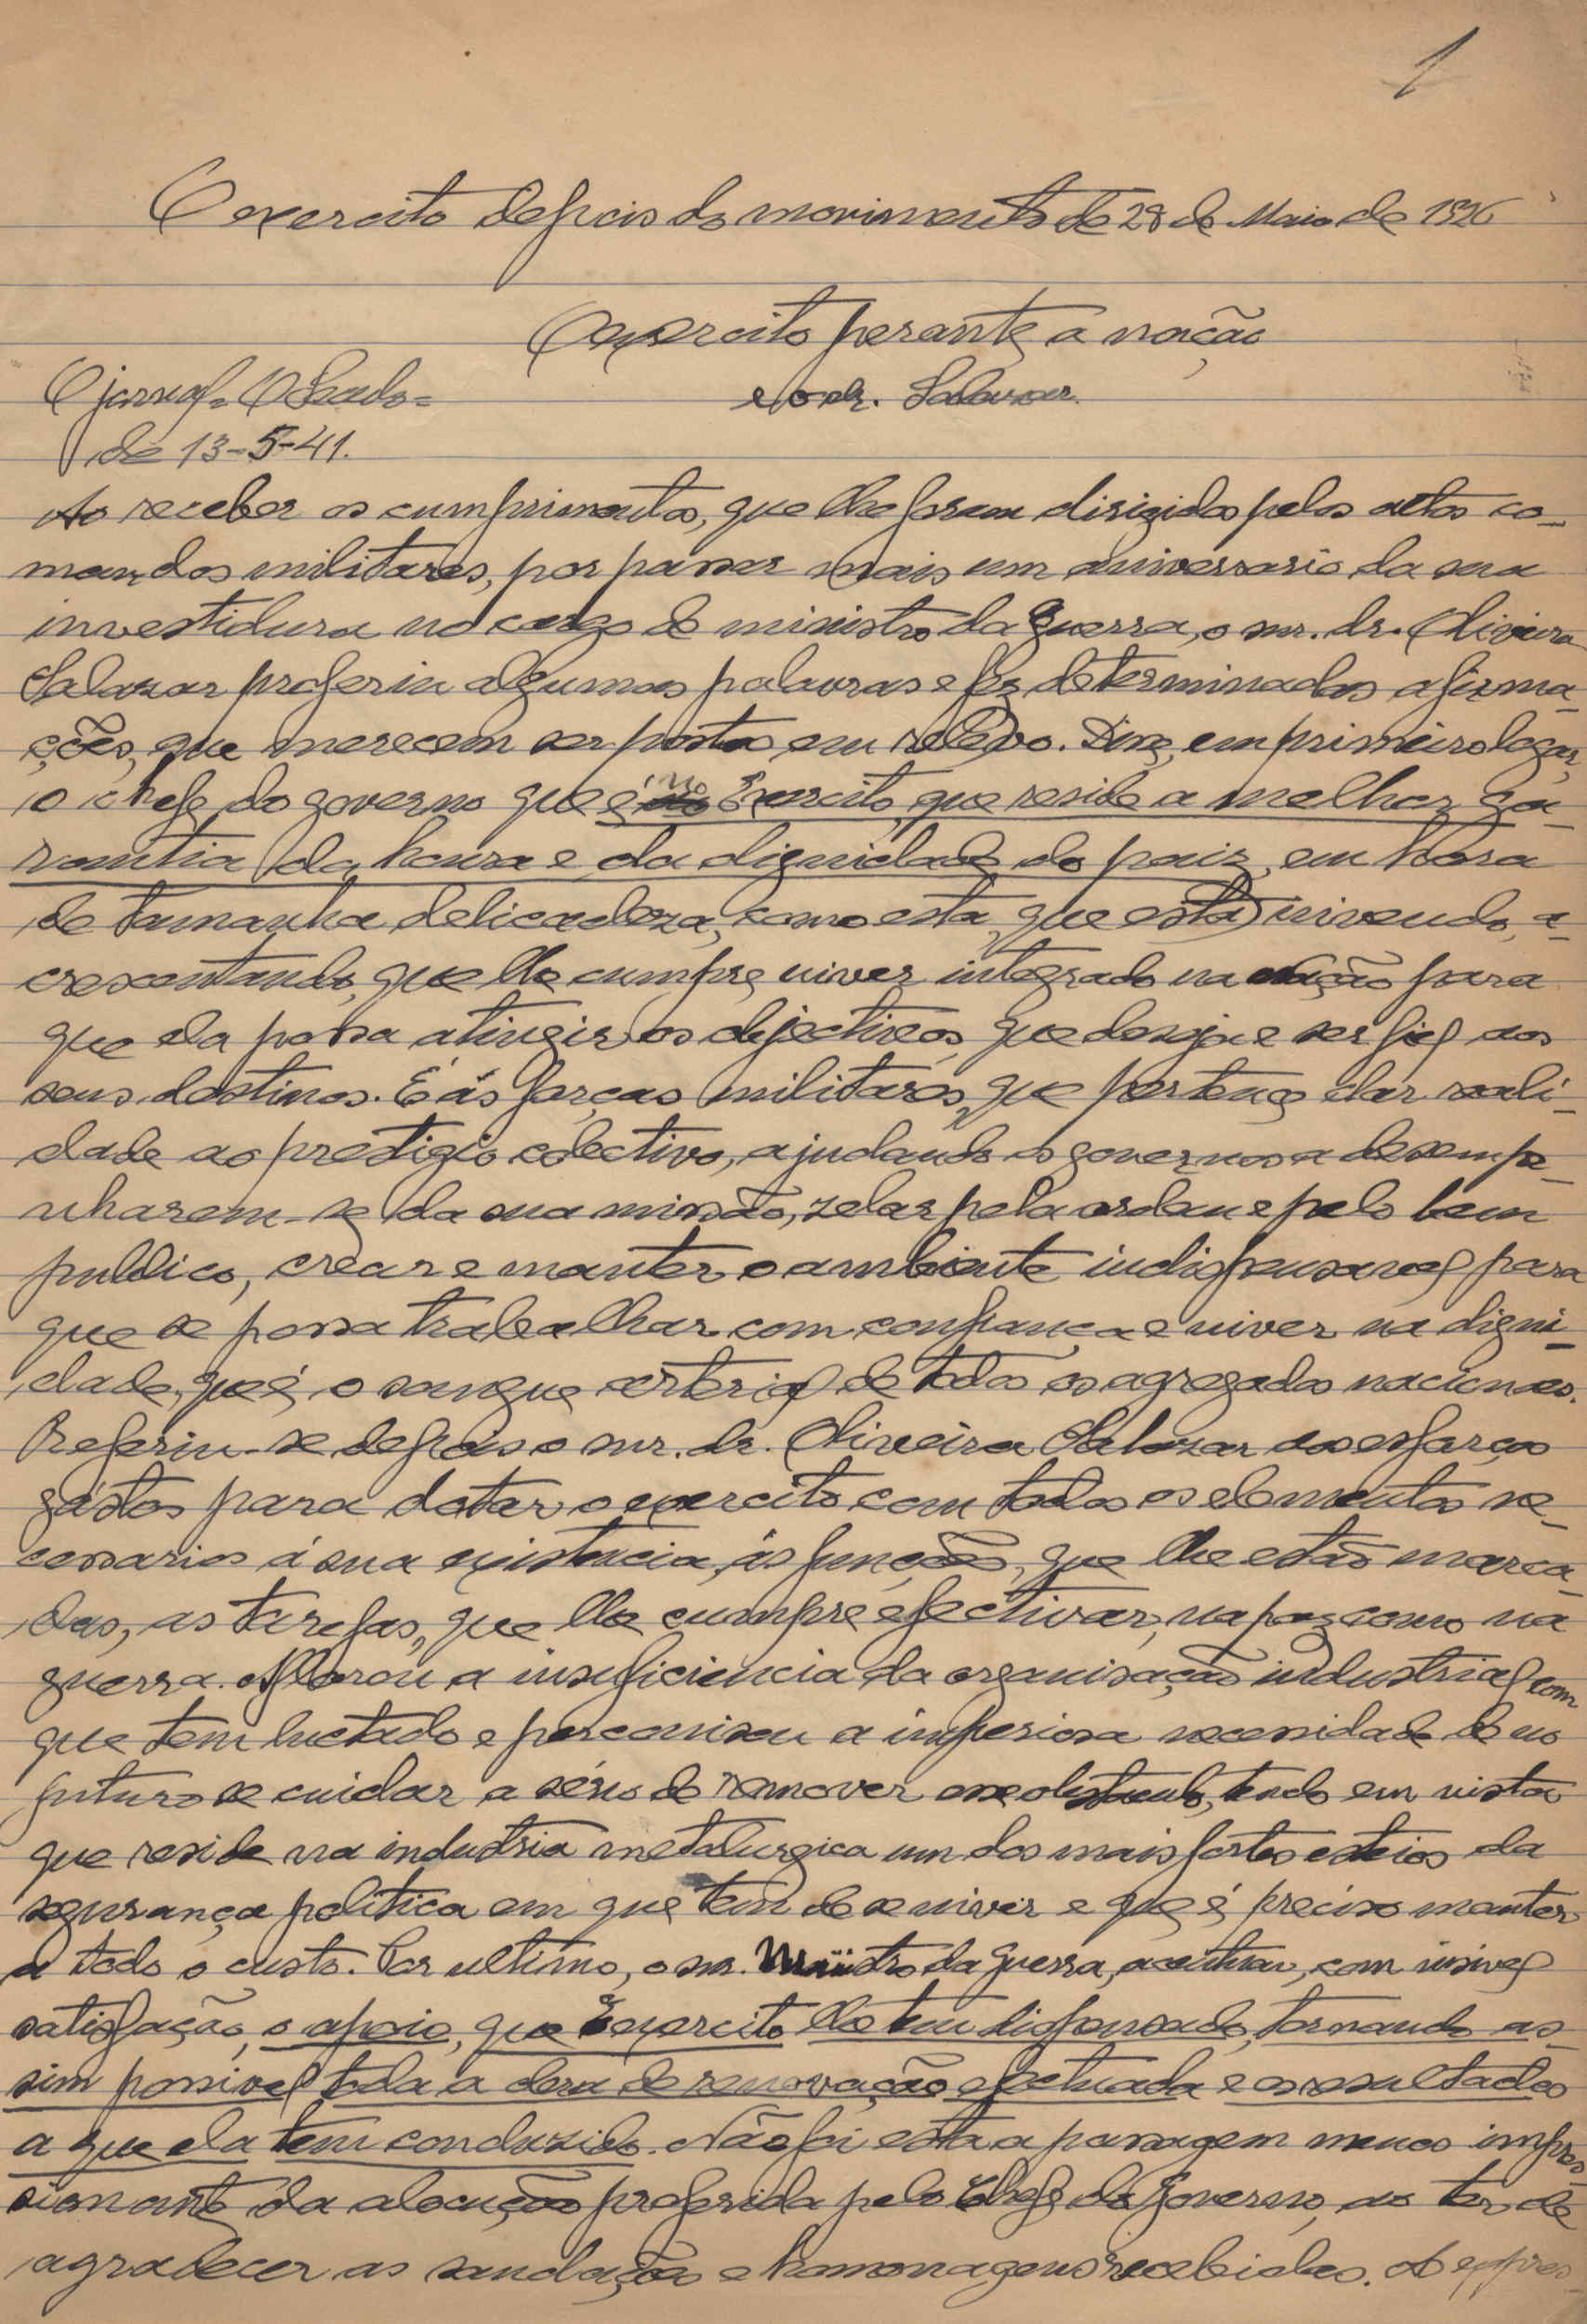 1
O exercito depois do movimento de 28 de Maio de 1926
O exercito perante a nação
e o dr. Salazar.
O jornal = O Seculo =
de 13-5-41.
Ao receber os cumprimentos, que lhe foram dirigidos pelos altos co-
mandos militares, por passar mais um aniversario da sua
investidura no cargo de ministro da Guerra, o snr. dr. Oliveira
Salazar proferiu algumas palavras e fez determinadas afirma-
ções, que merecem ser postas em relevo. Diz, em primeiro logar,
o chefe do governo que é no Exercito, que reside a melhor ga-
rantia da honra e da dignidade do paiz, em hora
de tamanha delicadeza, como esta, que está vivendo, a-
crescentando, que lhe cumpre viver integrado na nação para
que ela possa atingir os objectivos, que deseja e ser fiel aos
seus destinos. É ás forças militares, que pertence dar reali-
dade ao prestigio colectivo, ajudando os governos a desempe-
nharem-se da sua missão, zelar pela ordem e pelo bem
publico, crear e manter o ambiente indispensavel para
que se possa trabalhar com confiança e viver na digni-
dade, que é o sangue arterial de todos os agregados nacionaes.
Referiu-se depois o snr. dr. Oliveira Salazar aos esforços
gástos para dotar o exercito com todos os elementos ne-
cessarios á sua existencia, ás funções, que lhe estão marca-
das, as tarefas, que lhe cumpre efectivar, na paz como na
guerra. Aflorou a insuficiencia da organisação industrial com
que tem luctado e preconisou a imperiosa necessidade de no
futuro se cuidar a sério de remover esse obstaculo, tendo em vista
que reside na industria metalurgica um dos mais fortes esteios da
segurança politica em que tem de se viver e que é preciso manter
a todo o custo. Por ultimo, o snr. Ministro da Guerra, acentuou, com visivel
satisfação, o apoio, que o Exercito lhe tem dispensado, tornando as-
sim possivel toda a obra de renovação efectuada e os resultados
a que ela tem conduzido. Não foi esta a passagem menos impres-
sionante da alocução proferida pelo Chefe do Governo, ao ter de
agradecer as saudações e homenagens recebidas. A expres-